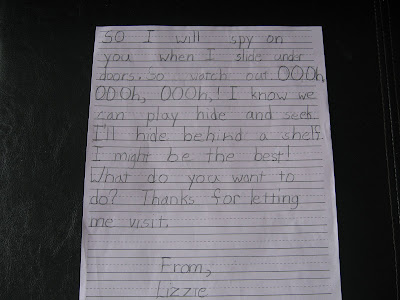 SO I will spy on
you when I slide under
doors. So watch out OOOh,
OOOh, OOOh,! I know we
can play hide and seek.
I'll hide behind a shelf.
I might be the best!
What do you want to
do? Thanks for letting
me visit.
From,
Lizzie